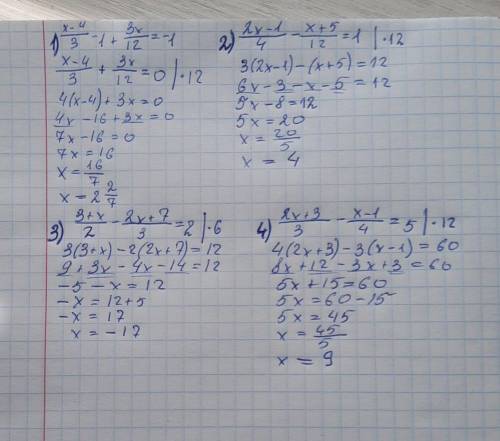 1) x-4/3 - 1 + 3x/12 = -1
x-4/3 + 3x/12 = 0 | · 12
4(x-4) + 3x = 0
4x - 16 + 3x = 0
7x - 16 = 0
7x = 16
x = 16/7
x = 2 2/7
2) 2x-1/4 - x+5/12 = 1 | · 12
3(2x-1) - (x+5) = 12
6x - 3 - x - 5 = 12
5x - 8 = 12
5x = 20
x = 20/5
x = 4
3) 3+x/2 - 2x+7/3 = 2 | · 6
3(3+x) - 2(2x+7) = 12
9 + 3x - 4x - 14 = 12
-5 - x = 12
-x = 12+5
-x = 17
x = -17
4) 2x+3/3 - x-1/4 = 5 | · 12
4(2x+3) - 3(x-1) = 60
8x + 12 - 3x + 3 = 60
5x + 15 = 60
5x = 60 - 15
5x = 45
x = 45/5
x = 9